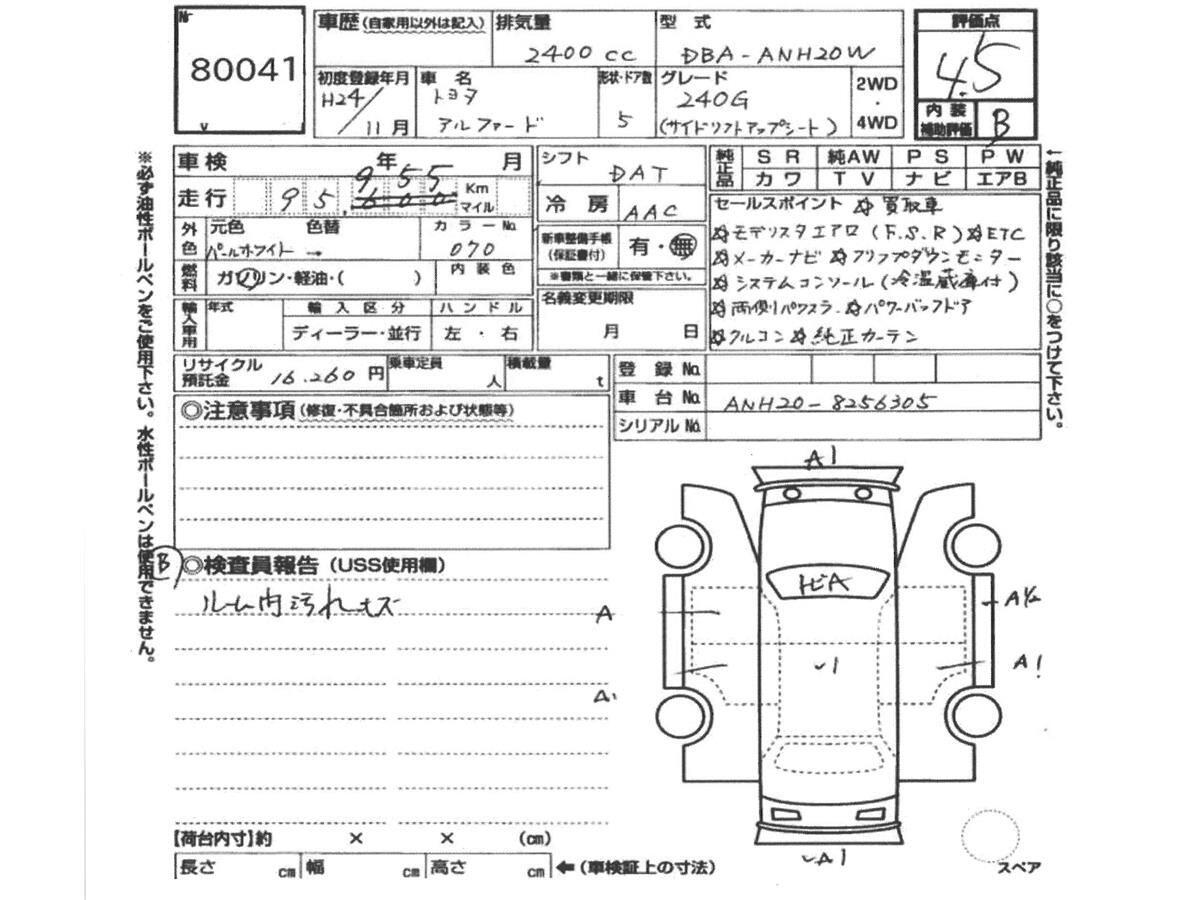 №
80041
車歴 (自家用以外は記入)
排気量
2400 cc
型 式
DBA-ANH20W
評価点
4.5
初度登録年月
H24/
11 月
車 名
トヨタ
アルファード
形状・ドア数
5
グレード
240G
(サイドリフトアップシート)
2WD
・
4WD
内 装
補助評価
B
車 検 年 月
走 行
955
95,600
Km
マイル
外色
元色 色替
パールホワイト →
カ ラ ー No.
070
燃料
ガソリン・軽油・( )
内 装 色
輸入車用
年式
輸 入 区 分
ディーラー・並行
ハ ン ド ル
左 ・ 右
シフト
DAT
冷 房
AAC
新車整備手帳
(保証書付)
有・無
※書類と一緒に保管下さい。
名義変更期限
月 日
純正品
S R
純AW
P S
P W
カ ワ
T V
ナ ビ
エアB
セールスポイント ☆買取車
☆モデリスタエアロ(F.S.R)☆ETC
☆メーカーナビ ☆フリップダウンモニター
☆システムコンソール(冷温蔵庫付)
☆両側パワスラ.☆パワーバックドア
☆クルコン ☆純正カーテン
リサイクル
預託金
16.260 円
乗車定員
人
積載量
t
登 録 No.
車 台 No.
ANH20-8256305
シリアル No.
◎注意事項 (修復・不具合箇所および状態等)
B
◎検査員報告 (USS使用欄)
ルーム内汚れキズ
A1
ヒA
A
A1/2
A1
A1
A1
スペア
【荷台内寸】約 × × (cm)
長さ cm
幅 cm
高さ cm
←(車検証上の寸法)
※必ず油性ボールペンをご使用下さい。水性ボールペンは使用できません。
←純正品に限り該当に○をつけて下さい。